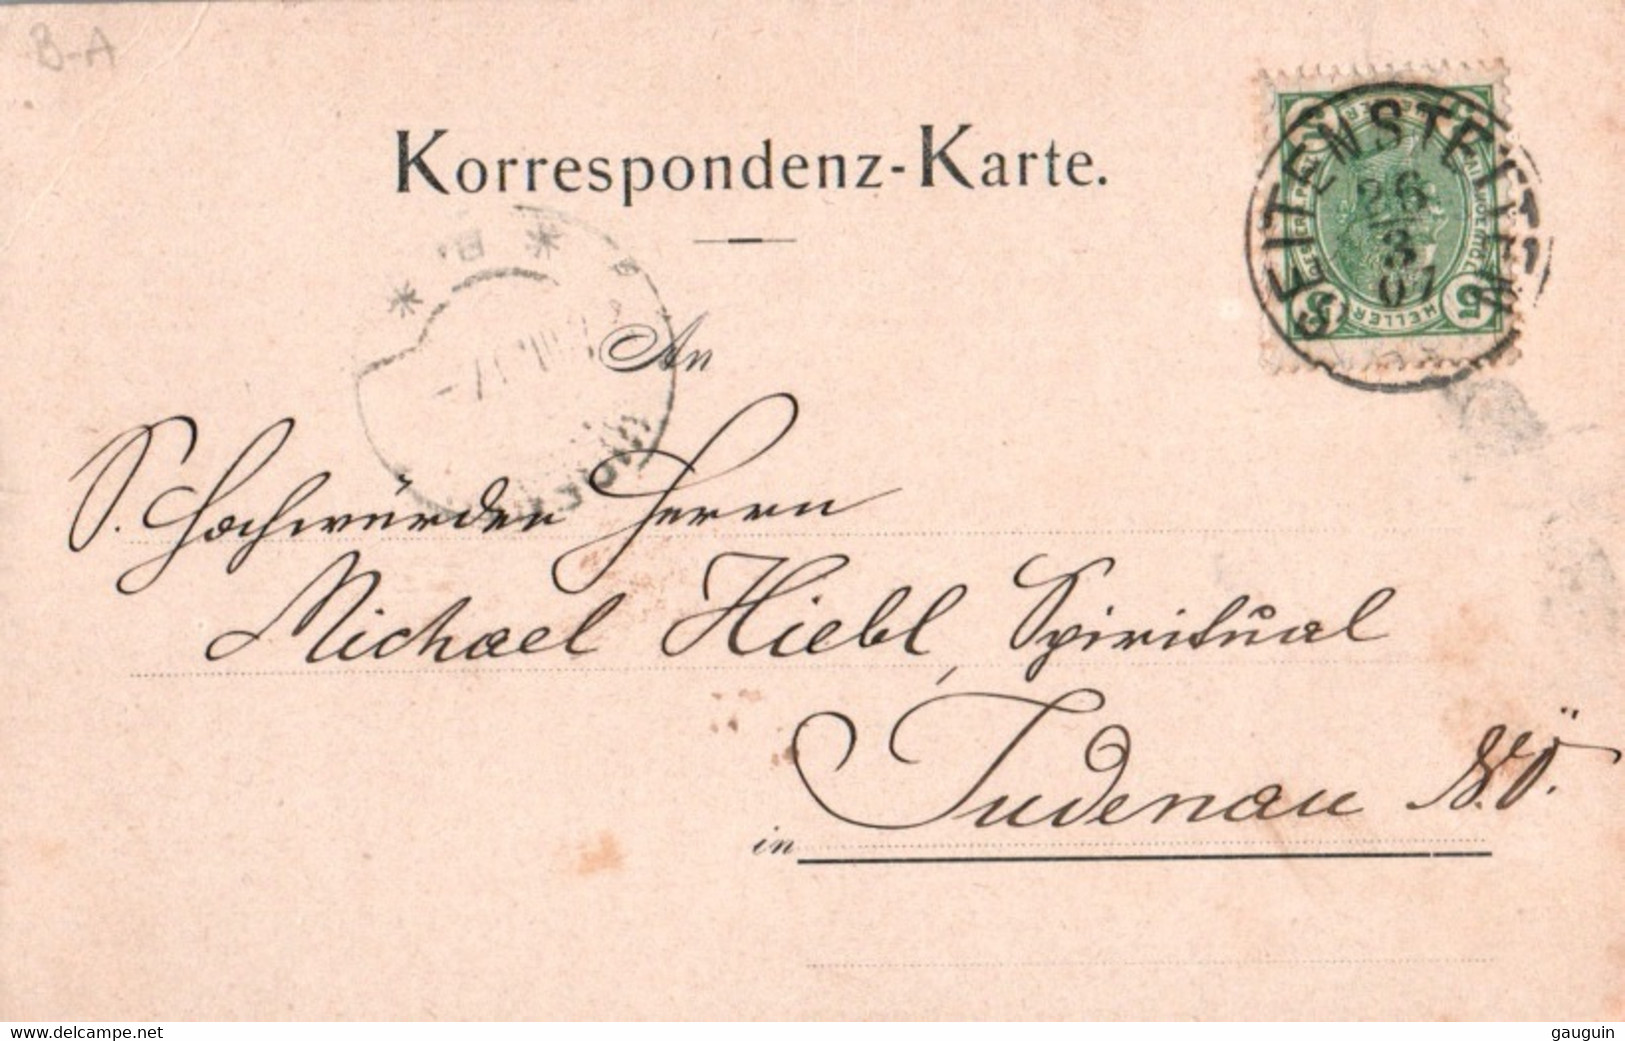 B-A
Korrespondenz-Karte.
SEITENSTETTEN
26
3
07
HELLER
5
An
S. Hochwürden Herrn
Michael Hiebl, Spiritual
in Judenau N.Ö.
www.delcampe.net
gauguin